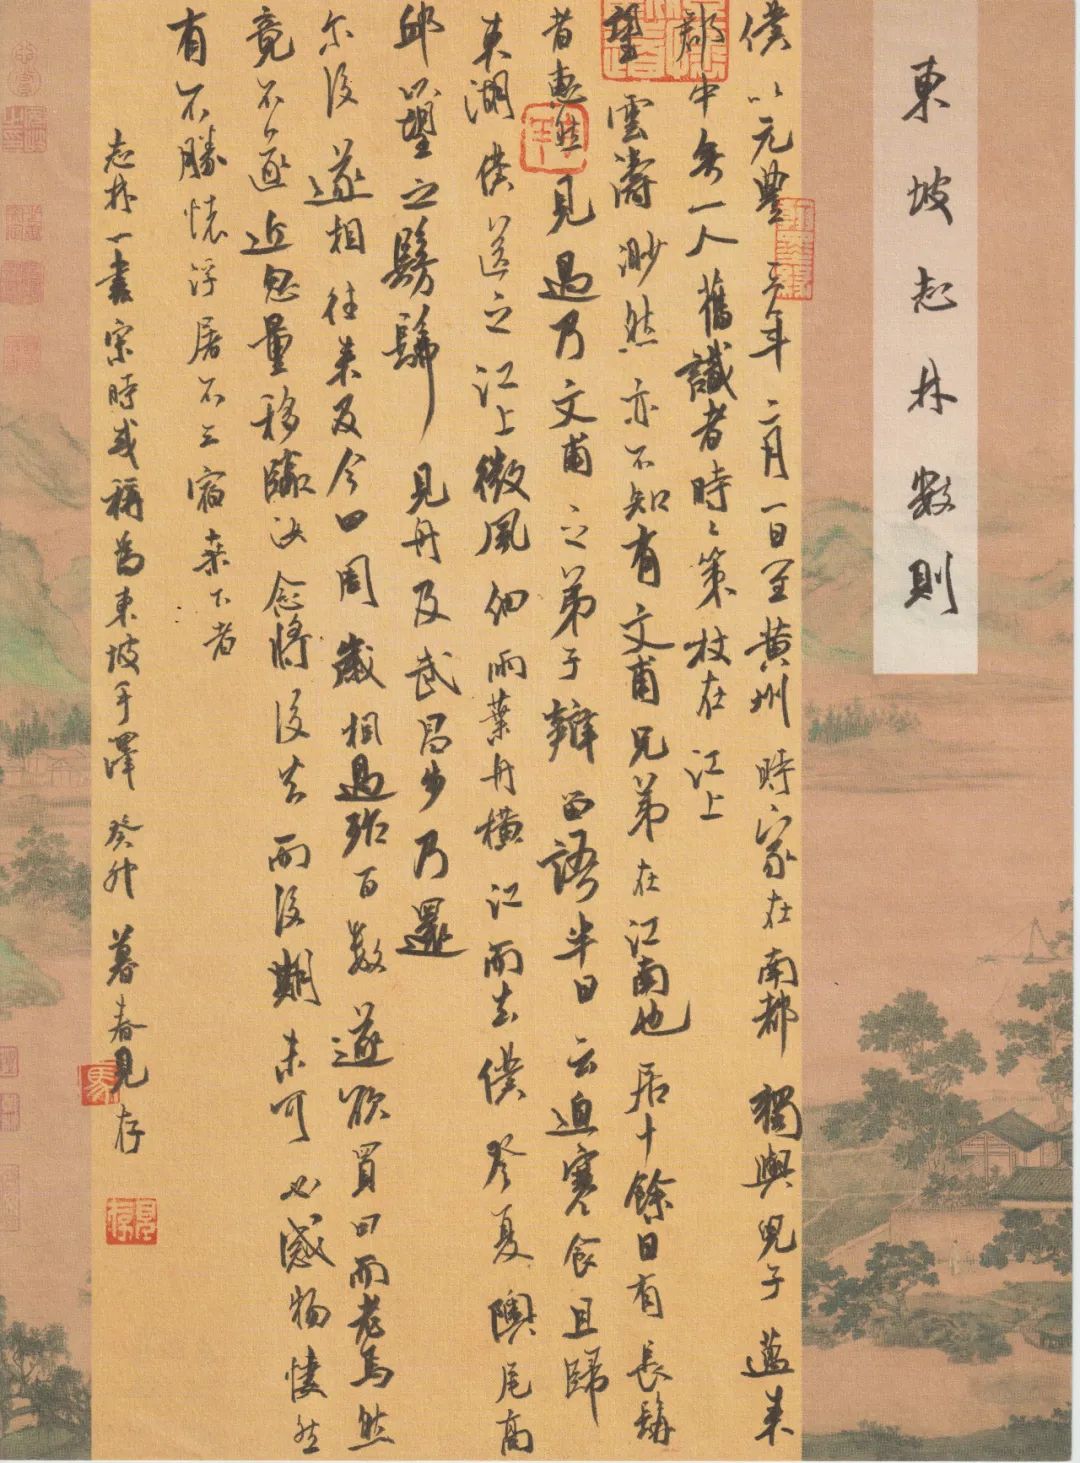 東坡志林數則
僕以元豐三年二月一日至黃州時家在南都獨與兒子邁來
郡中無一人舊識者時時策杖在江上
望雲濤渺然亦不知有文甫兄弟在江南也居十餘日有長髯
者惠然見過乃文甫之弟子辯留語半日云迫寒食且歸
東湖僕送之江上微風細雨葉舟橫江而去僕登夏隩尾高
邱以望之髣髴見舟及武昌步乃還
尔後遂相往來及今四周歲相過殆百數遂欲買田而老焉然
竟不遂近忽量移臨汝念將復去而後期未可必感物悽然
有不勝懷浮屠不三宿桑下者
志林一書宋時或稱為東坡手澤癸卯暮春見存